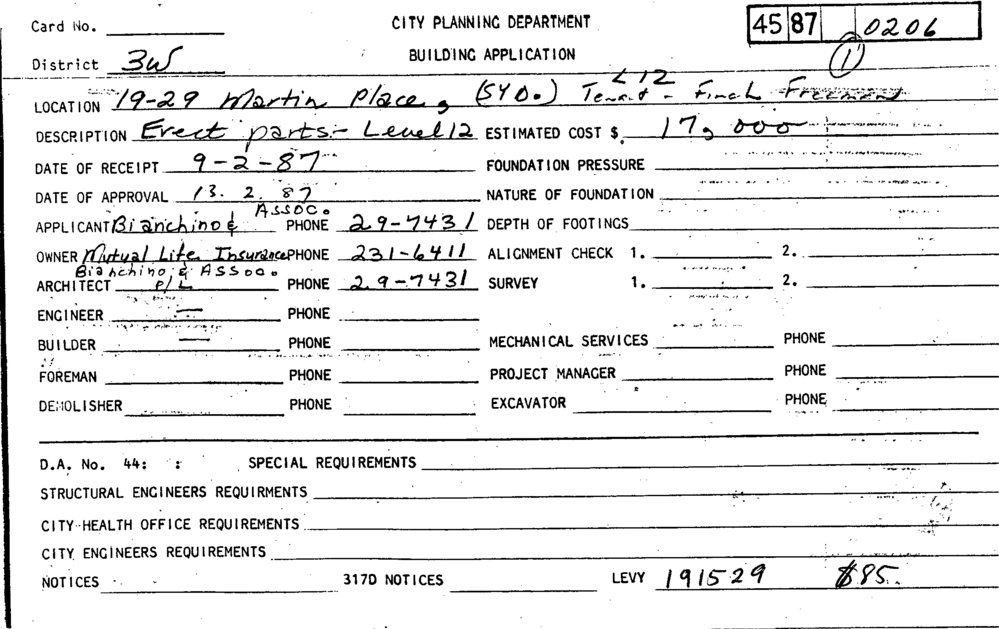 Card No. CITY PLANNING DEPARTMENT 45 87 0206
District 3W BUILDING APPLICATION 1
L12
LOCATION 19-29 Martin Place, (SYD.) Tenant - Finch Freeman
DESCRIPTION Erect parts:- Level 12 ESTIMATED COST $ 17,000
DATE OF RECEIPT 9-2-87 FOUNDATION PRESSURE
DATE OF APPROVAL 13. 2. 87 NATURE OF FOUNDATION
ASSOC.
APPLICANT Bianchino & PHONE 29-7431 DEPTH OF FOOTINGS
OWNER Mutual Life Insurance PHONE 231-6411 ALIGNMENT CHECK 1. 2.
Bianchino & ASSoc.
ARCHITECT P/L PHONE 29-7431 SURVEY 1. 2.
ENGINEER — PHONE
BUILDER — PHONE MECHANICAL SERVICES PHONE
FOREMAN PHONE PROJECT MANAGER PHONE
DEMOLISHER PHONE EXCAVATOR PHONE
D.A. No. 44: : SPECIAL REQUIREMENTS
STRUCTURAL ENGINEERS REQUIRMENTS
CITY HEALTH OFFICE REQUIREMENTS
CITY ENGINEERS REQUIREMENTS
NOTICES 317D NOTICES LEVY 191529 $85.